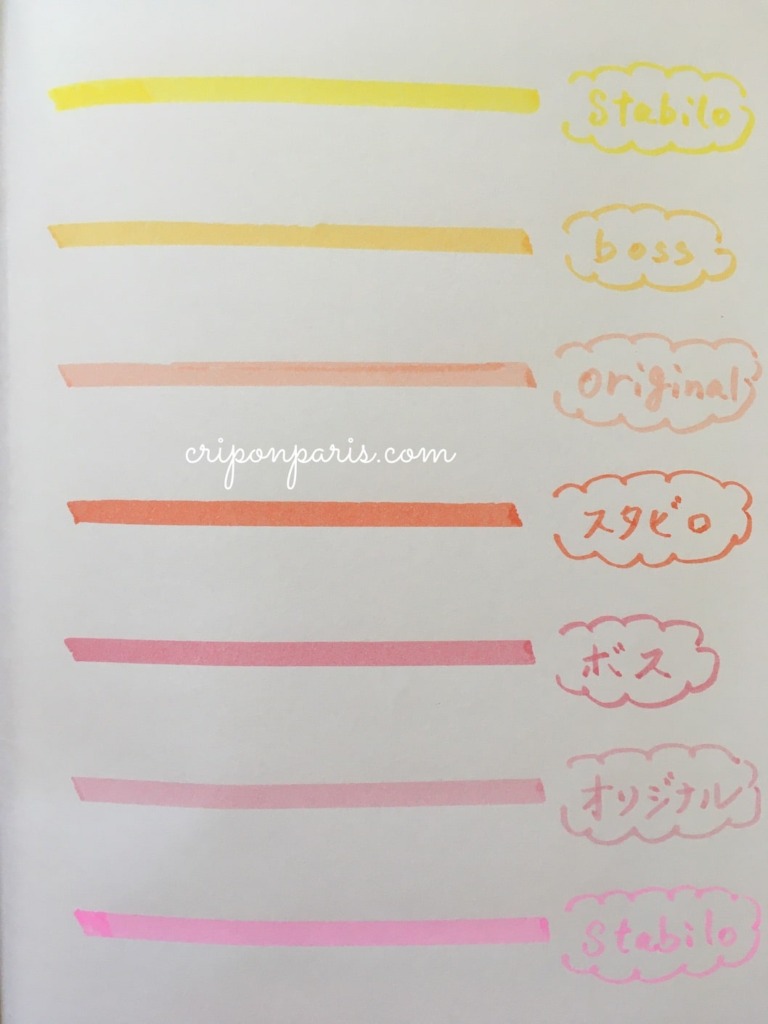 Stabilo
boss
original
criponparis.com
スタビロ
ボス
オリジナル
Stabilo